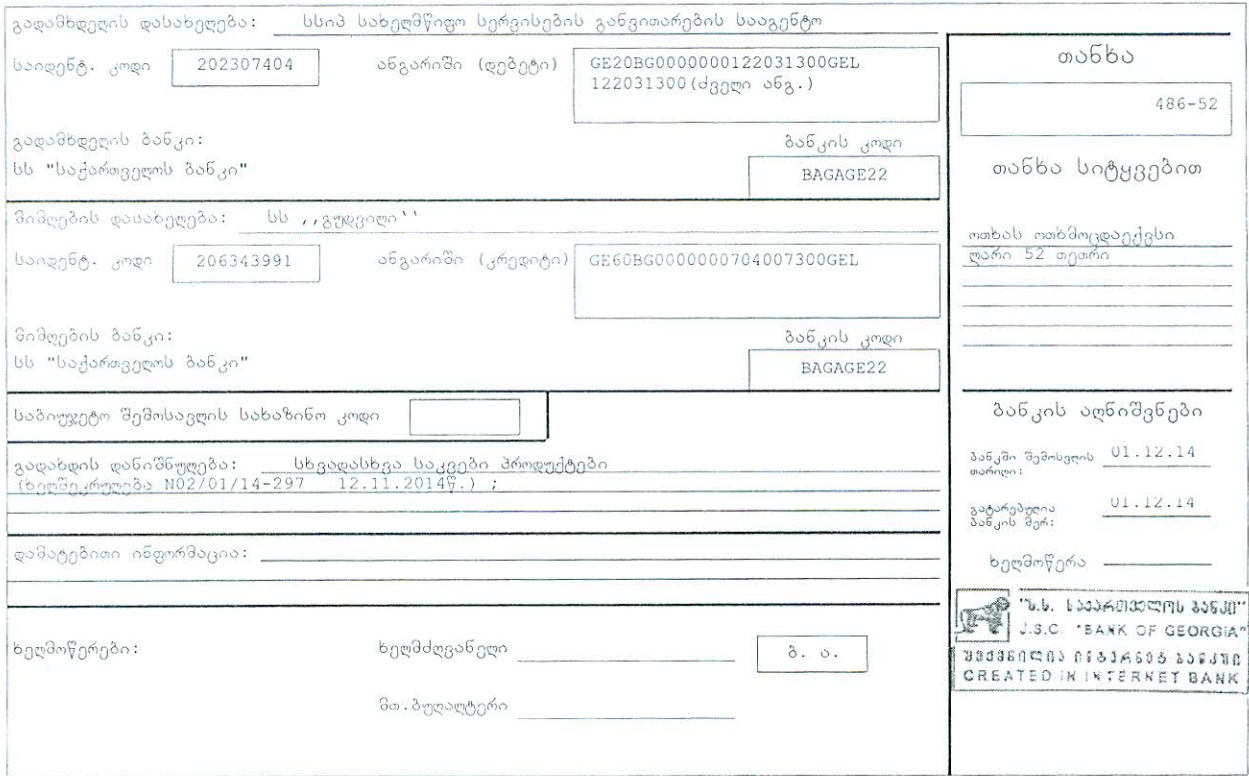 გადამხდელის დასახელება: სსიპ სახელმწიფო სერვისების განვითარების სააგენტო
საიდენტ. კოდი 202307404 ანგარიში (დებეტი) GE20BG0000000122031300GEL
122031300(ძველი ანგ.)
გადამხდელის ბანკი: ბანკის კოდი
სს "საქართველოს ბანკი" BAGAGE22
მიმღების დასახელება: სს ,,გუდვილი''
საიდენტ. კოდი 206343991 ანგარიში (კრედიტი) GE60BG0000000704007300GEL
მიმღების ბანკი: ბანკის კოდი
სს "საქართველოს ბანკი" BAGAGE22
საბიუჯეტო შემოსავლის სახაზინო კოდი
გადახდის დანიშნულება: სხვადასხვა საკვები პროდუქტები
(ხელშეკრულება N02/01/14-297 12.11.2014წ.) ;
დამატებითი ინფორმაცია:
ხელმოწერები: ხელმძღვანელი ბ. ა.
მთ.ბუღალტერი
თანხა
486-52
თანხა სიტყვებით
ოთხას ოთხმოცდაექვსი
ლარი 52 თეთრი
ბანკის აღნიშვნები
ბანკში შემოსვლის 01.12.14
თარიღი:
გატარებულია 01.12.14
ბანკის მერ:
ხელმოწერა
"ს.ს. საქართველოს ბანკი"
J.S.C. "BANK OF GEORGIA"
შექმნილია ინტერნეტ ბანკში
CREATED IN INTERNET BANK